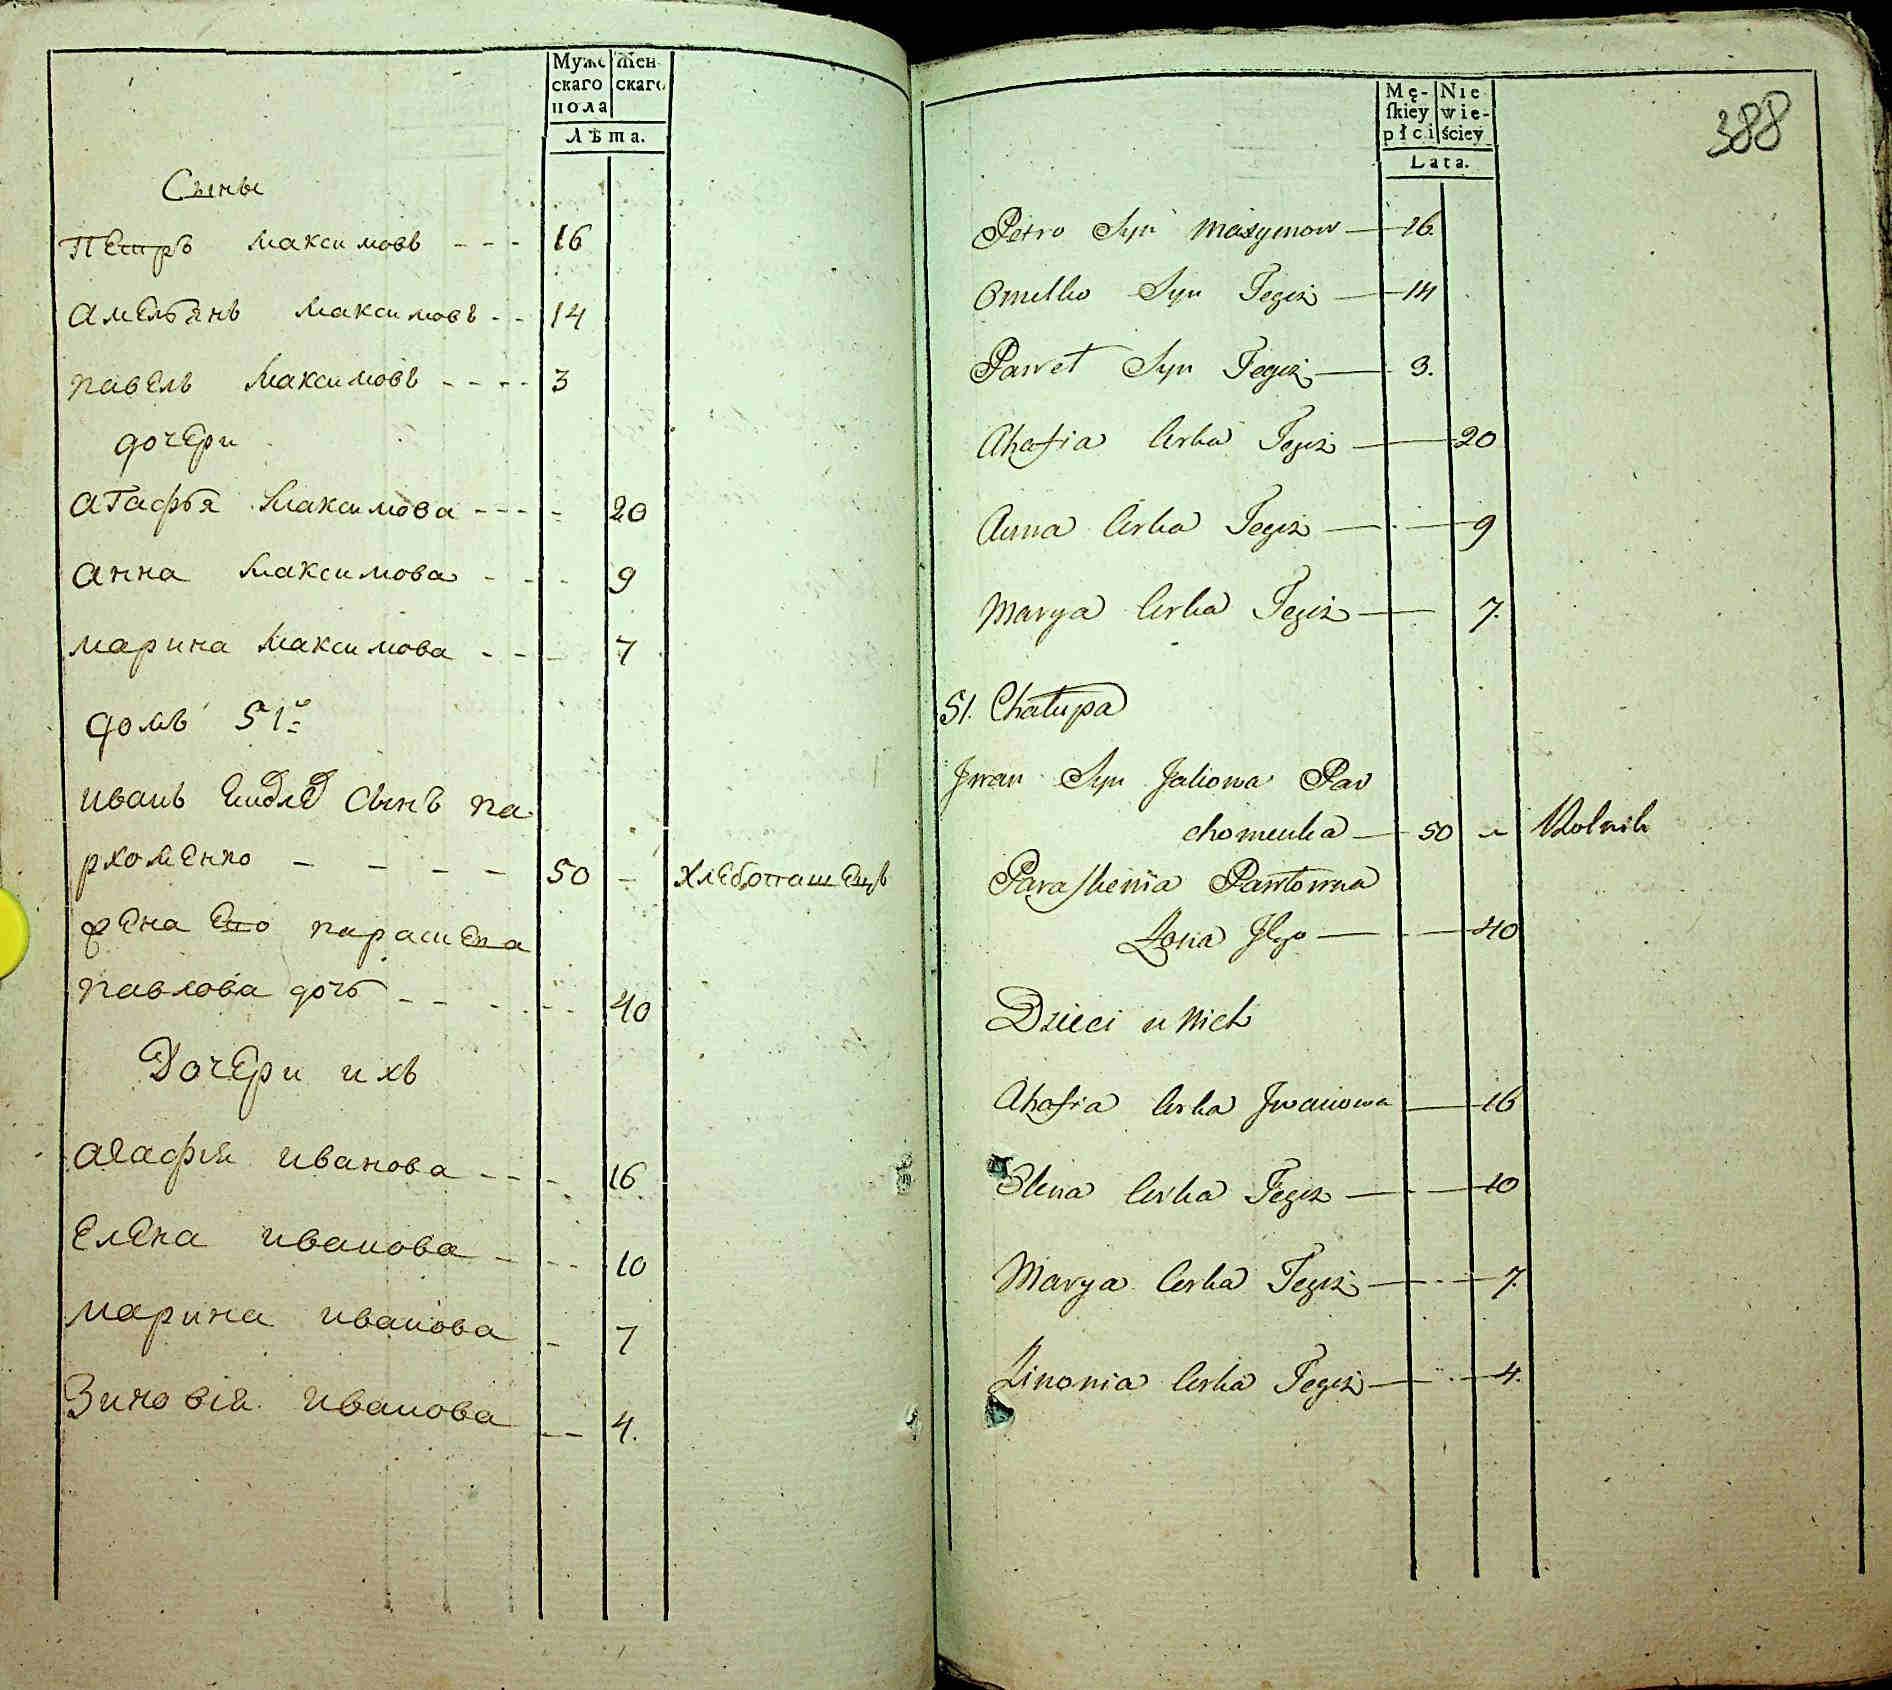 Мужс Жен
скаго скаго
пола
Лѣта.
Сыны
Петръ Максимовъ - - - 16
Амельянъ Максимовъ - - 14
Павель Максимовъ - - - - 3
дочери
Агафья Максимова - - - - 20
Анна Максимова - - - 9
Марина Максимова - - - 7
домъ 51й
Иванъ сынъ Па
рхоменко - - - - 50 - хлебопашецъ
жена ево Параскева
Павлова дочь - - - - - 40
Дочери ихъ
Агафия Иванова - - - 16
Елена Иванова - - - 10
Марина Иванова - 7
Зиновія Иванова - - 4.
388
Mę- Nie
ſkiey wie-
płci ściey
Lata.
Petro Syn Maxymow — 16.
Omelko Syn Tegoż — 14
Paweł Syn Tegoż — 3.
Ahafia Corka Tegoż — 20
Anna Corka Tegoż — 9
Marya Corka Tegoż — 7.
51. Chałupa
Jwan Syn Jakowa Par
chomenka — 50 - Rolnik
Paraskewia Pawłowna
Żona Jego — 40
Dzieci u Nich
Ahafia Corka Jwanowa — 16
Elena Corka Tegoż — 10
Marya Corka Tegoż — 7.
Zinowia Corka Tegoż — 4.